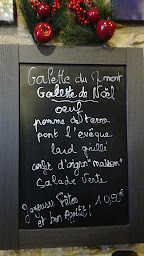 Galette du moment
Galette de Noël
oeuf
pomme de terre
pont l'évêque
lard grillé
confit d'oignon "maison"
Salade verte
Joyeuses Fêtes
et bon Appétit! 10,50€